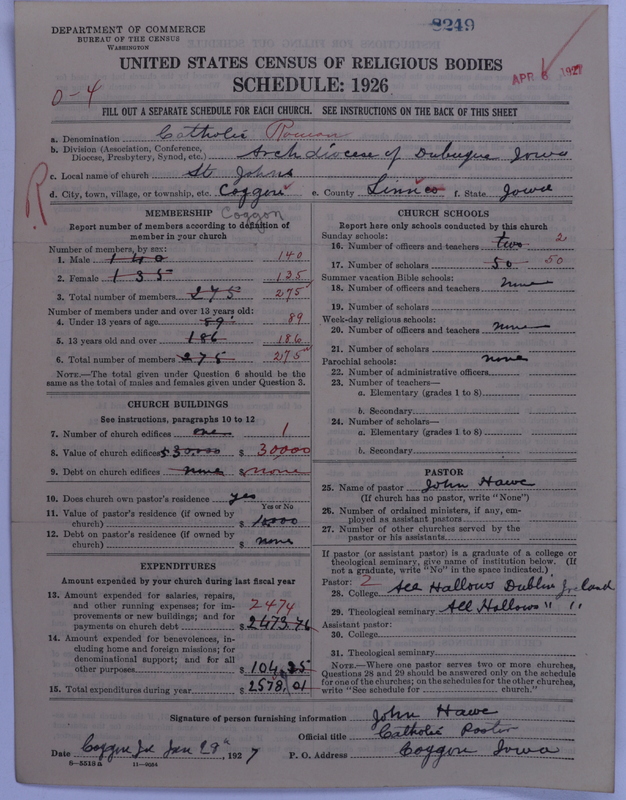 DEPARTMENT OF COMMERCE
BUREAU OF THE CENSUS
WASHINGTON
8249
UNITED STATES CENSUS OF RELIGIOUS BODIES
SCHEDULE: 1926
APR 6 1927
0-4
FILL OUT A SEPARATE SCHEDULE FOR EACH CHURCH. SEE INSTRUCTIONS ON THE BACK OF THIS SHEET
a. Denomination Catholic Roman
b. Division (Association, Conference, Diocese, Presbytery, Synod, etc.) Archdiocese of Dubuque Iowa
c. Local name of church St Johns
R
d. City, town, village, or township, etc. Coggon e. County Linn co f. State Iowa
Coggon
MEMBERSHIP
Report number of members according to definition of
member in your church
Number of members, by sex:
1. Male 140 140
2. Female 135 135
3. Total number of members 275 275
Number of members under and over 13 years old:
4. Under 13 years of age 89 89
5. 13 years old and over 186 186
6. Total number of members 275 275
NOTE.—The total given under Question 6 should be
the same as the total of males and females given under Question 3.
CHURCH BUILDINGS
See instructions, paragraphs 10 to 12
7. Number of church edifices one 1
8. Value of church edifices $30.000 $ 30000
9. Debt on church edifices none $ none
10. Does church own pastor's residence yes
Yes or No
11. Value of pastor's residence (if owned by
church) $ 10.000
12. Debt on pastor's residence (if owned by
church) $ none
EXPENDITURES
Amount expended by your church during last fiscal year
13. Amount expended for salaries, repairs,
and other running expenses; for im-
provements or new buildings; and for
payments on church debt 2474 $ 2473.76
14. Amount expended for benevolences, in-
cluding home and foreign missions; for
denominational support; and for all
other purposes $ 104.25
15. Total expenditures during year $ 2578.01
CHURCH SCHOOLS
Report here only schools conducted by this church
Sunday schools:
16. Number of officers and teachers two 2
17. Number of scholars 50 50
Summer vacation Bible schools:
18. Number of officers and teachers none
19. Number of scholars
Week-day religious schools:
20. Number of officers and teachers none
21. Number of scholars
Parochial schools: none
22. Number of administrative officers
23. Number of teachers—
a. Elementary (grades 1 to 8)
b. Secondary
24. Number of scholars—
a. Elementary (grades 1 to 8)
b. Secondary
PASTOR
25. Name of pastor John Hawe
(If church has no pastor, write "None")
26. Number of ordained ministers, if any, em-
ployed as assistant pastors
27. Number of other churches served by the
pastor or his assistants
If pastor (or assistant pastor) is a graduate of a college or
theological seminary, give name of institution below. (If
not a graduate, write "No" in the space indicated.)
Pastor: 2
28. College All Hallows Dublin Ireland
29. Theological seminary All Hallows " "
Assistant pastor:
30. College
31. Theological seminary
NOTE.—Where one pastor serves two or more churches,
Questions 28 and 29 should be answered only on the schedule
for one of the churches; on the schedules for the other churches,
write "See schedule for church."
Signature of person furnishing information John Hawe
Official title Catholic Pastor
Date Coggon Ia Jan 29th, 1927 P. O. Address Coggon Iowa
8-5518a 11-9684